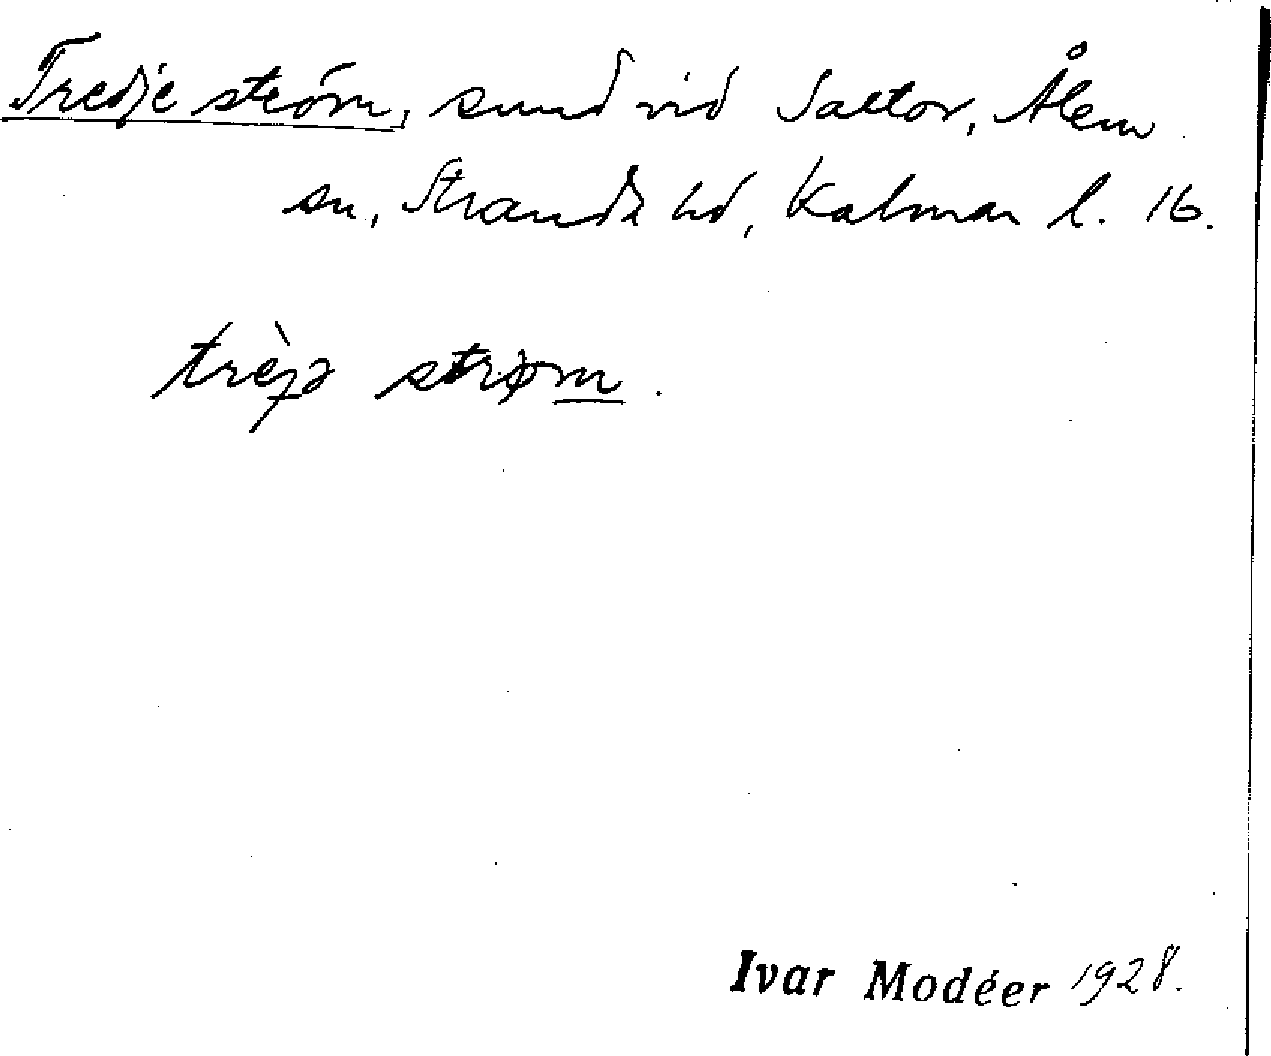 Tredje ström, sund vid Saltor, Ålem
sn, Stranda hd, Kalmar l. 16.
trèȷə strøm.
Ivar Modéer 1928.